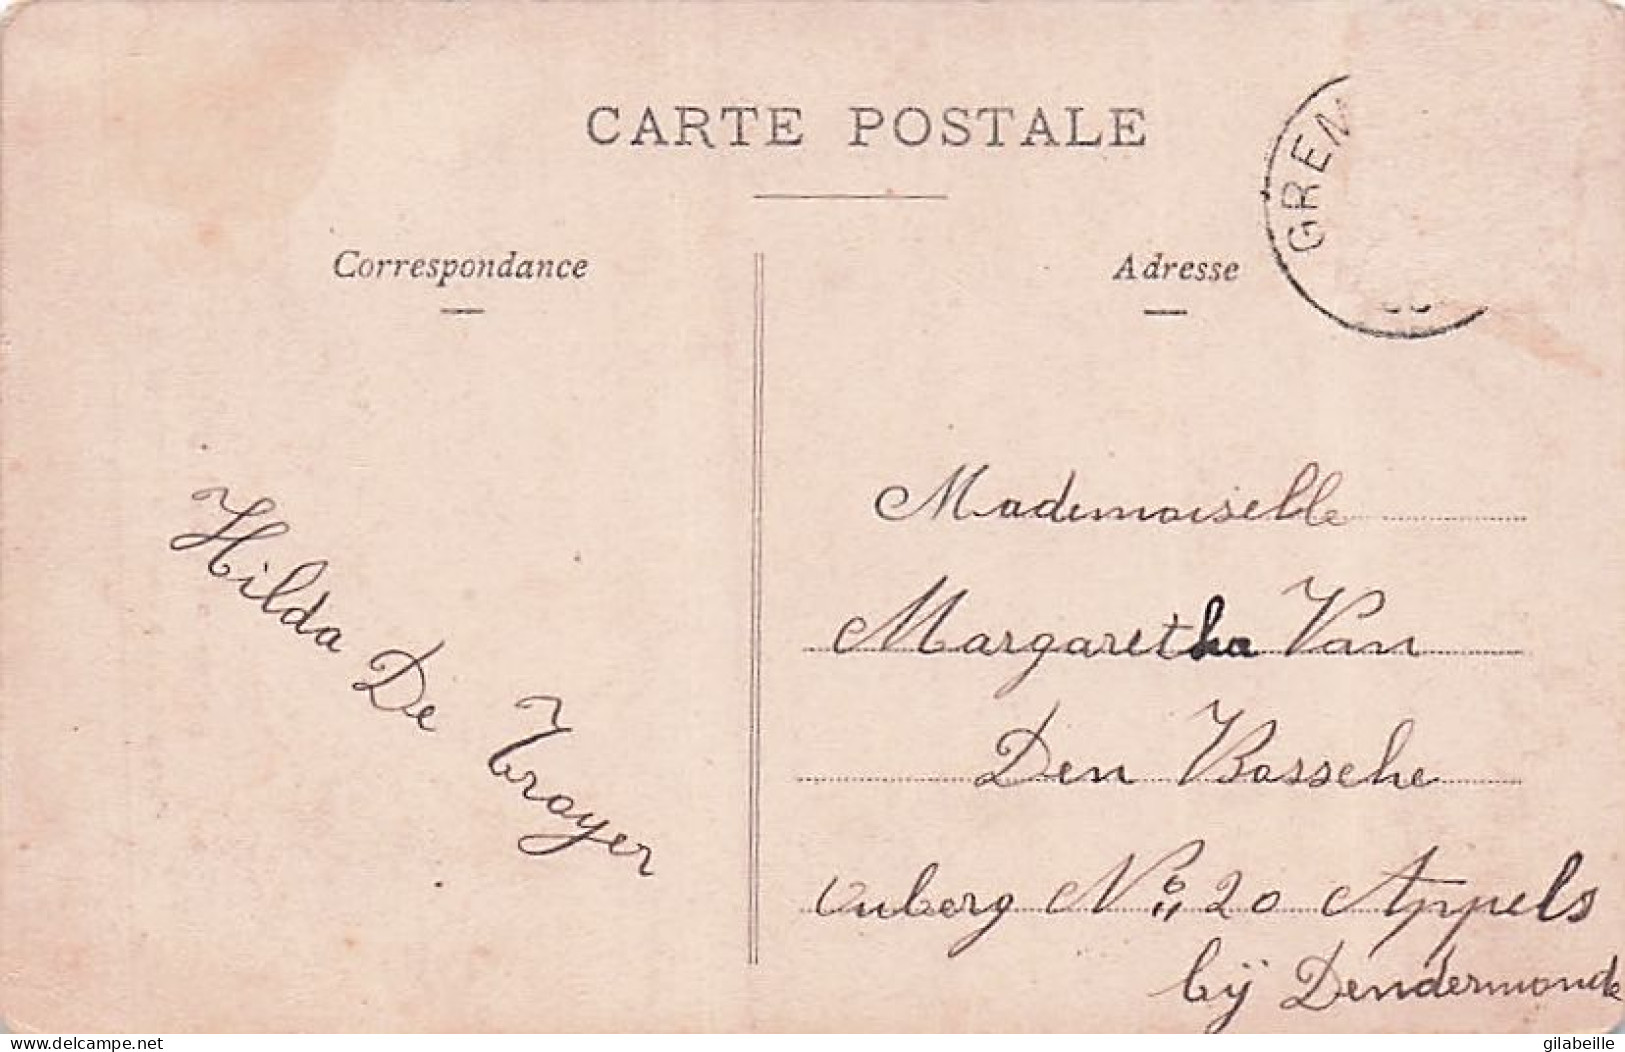 CARTE POSTALE
GREM
Correspondance
Adresse
Hilda De Trayer
Mademoiselle
Margaretha Van
Den Bossche
N° 20 Appels
bij Dendermonde
delcampe.net
gilabeille